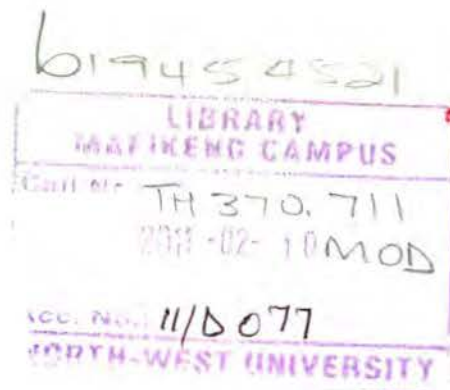 b19454521
LIBRARY
MAFIKENG CAMPUS
Call No. TH 370.711
2011 -02- 10 MOD
Acc. No.: 11/D077
NORTH-WEST UNIVERSITY